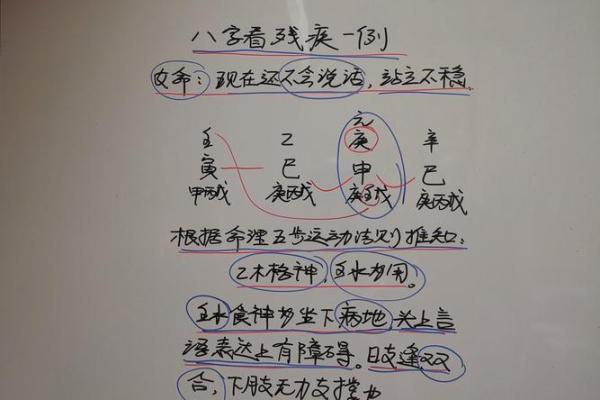 八字看残疾一例
女命：现在还不会说话，站立不稳。
元
壬 乙 庚 辛
寅 巳 申 巳
甲丙戊 庚丙戊 庚壬戊 庚丙戊
根据命理五步运动法则推知：
乙木格神，壬水为用。
壬水食神坐下病地，关上言
语表达上有障碍。日支逢双
合，下肢无力支撑